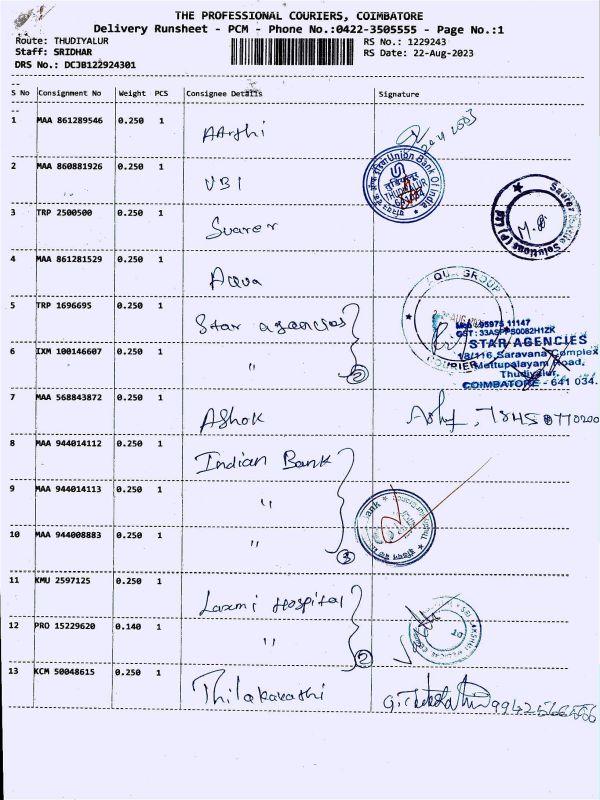 THE PROFESSIONAL COURIERS, COIMBATORE
Delivery Runsheet - PCM - Phone No.:0422-3505555 - Page No.:1
Route: THUDIYALUR RS No.: 1229243
Staff: SRIDHAR RS Date: 22-Aug-2023
DRS No.: DCJB122924301
S No Consignment No Weight PCS Consignee Details Signature
1 MAA 861289546 0.250 1 AArthi
2 MAA 860881926 0.250 1 UBI
Union Bank Of India
THUDIYALUR
3 TRP 2500500 0.250 1 Suarer
4 MAA 861281529 0.250 1 Aqua
AQUA GROUP
5 TRP 1696695 0.250 1 Star agencies
Mob: 95975 11147
GST: 33ASPPS0082H1ZK
STAR AGENCIES
18/116, Saravana Complex
Mettupalayam Road,
Thudiyalur,
COIMBATORE - 641 034.
6 IXM 100146607 0.250 1 " 2
7 MAA 568843872 0.250 1 Ashok
8 MAA 944014112 0.250 1 Indian Bank
9 MAA 944014113 0.250 1 "
10 MAA 944008883 0.250 1 " 3
11 KMU 2597125 0.250 1 Laxmi Hospital
12 PRO 15229620 0.140 1 " 2
13 KCM 50048615 0.250 1 Thilakavathi